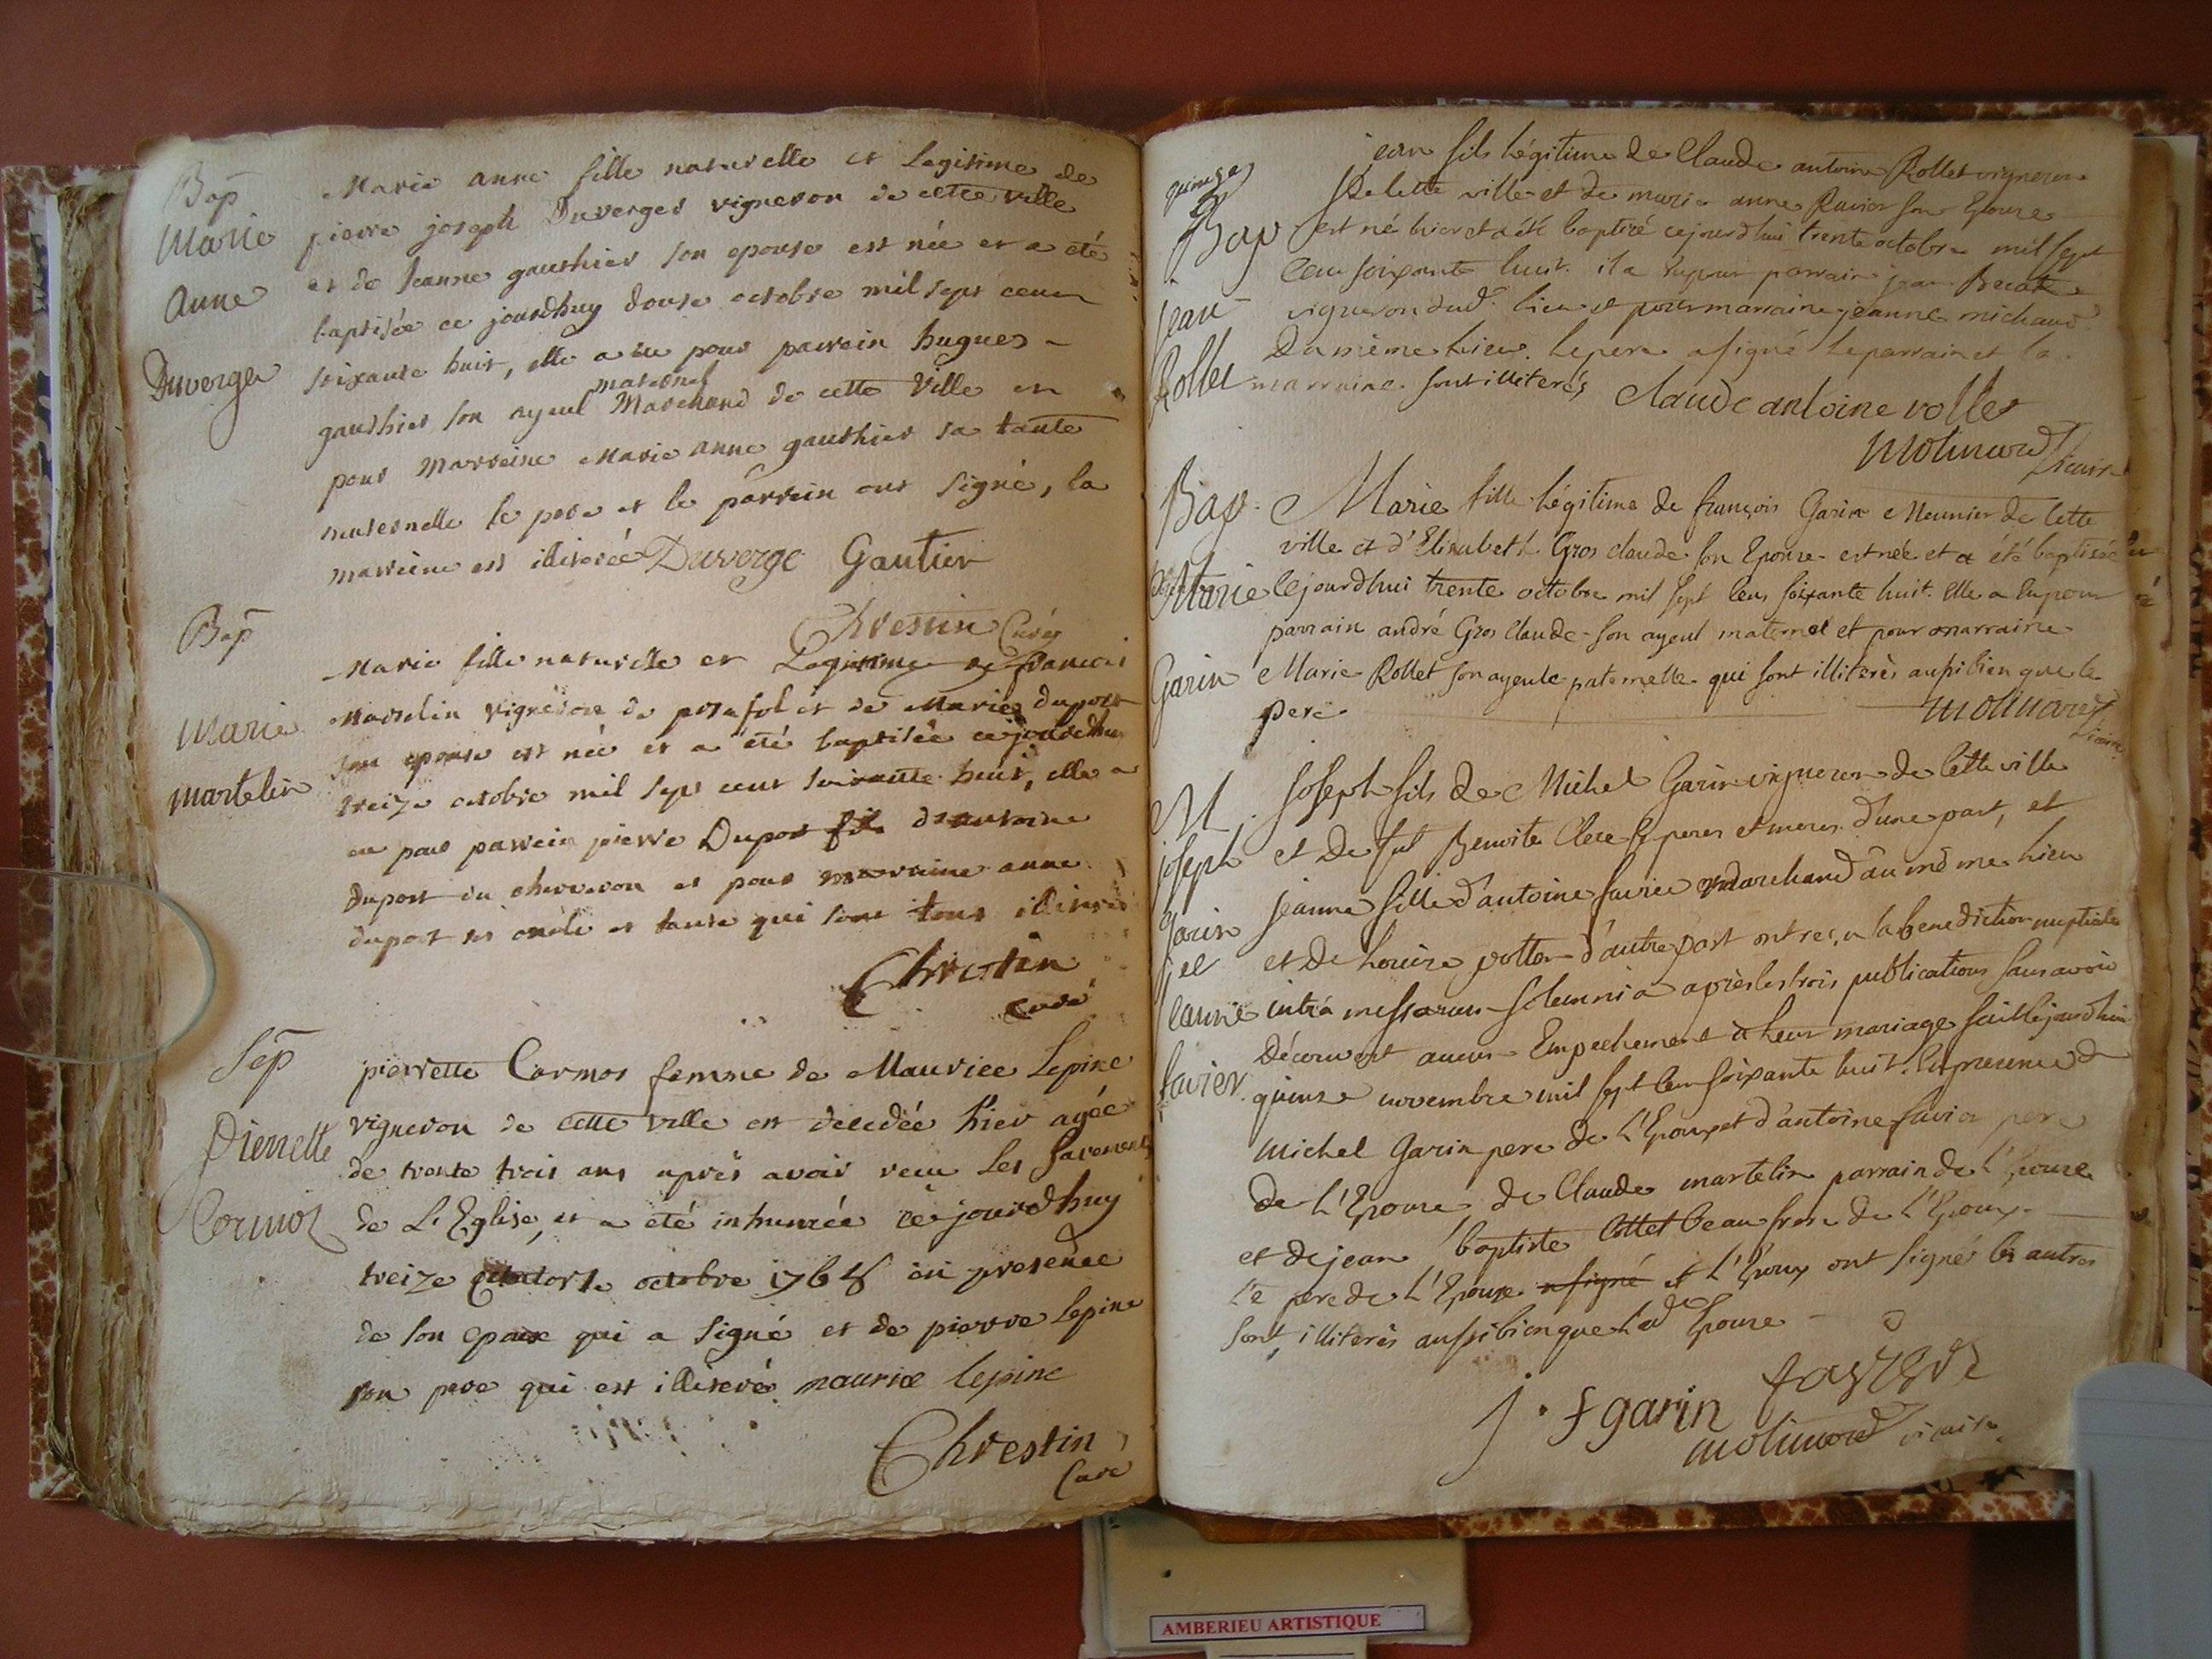 Bap
Marie
Anne
Duverger
Marie anne fille naturelle et Legitime de
pierre joseph Duverger vigneron de cette ville
et de Jeanne gauthier son epouse est née et a été
baptisée ce jourdhuy douse octobre mil sept cent
soixante huit, elle a eu pour parrein hugues
gauthier son ayeul maternel Marchand de cette Ville et
pour Marreine Marie anne gauthier sa tante
maternelle le pere et le parrein ont signé, la
marreine est illiterée Duverge Gautier
Chrestin Curé
Bap
Marie
martelin
Marie fille naturelle et Legitime de francois
Martelin vigneron de et de Marie duport
son epouse est née et a été baptisée cejourdhuy
treize octobre mil sept cent soixante huit, elle a
eu pour parrein pierre Duport fils d'antoine
duport du et pour marreine anne
duport ses oncle et tante qui sont tous illiterés
Chrestin
Curé
Sep
Pierrette
Cormoz
pierrette Cormoz femme de Maurice Lepine
vigneron de cette ville est decedée hier agée
de trente trois ans après avoir recu les Sacrements
de L'Eglise, et a été inhumée cejourdhuy
treize octobre 1768 en presence
de son epoux qui a signé et de pierre lepine
son pere qui est illiteré maurice lepine
Chrestin
Curé
Bap
Jean
Rollet
jean fils légitime de Claude antoine Rollet vigneron
de cette ville et de marie anne Ravier son Epouse
est né hier et a été baptisé cejourdhui trente octobre mil sept
cens soixante huit. il a eu pour parrain jean
vigneron dud. lieu et pour marraine jeanne michaud
Du même lieu. le pere a signé le parrain et la
marraine sont illiterés Claude antoine rollet
Molinard Vicaire
Bap.
Marie
Garin
Marie fille légitime de françois Garin Meunier de cette
ville et d'Elisabeth Gros claude son Epouse est née et a été baptisée
cejourdhui trente octobre mil sept cens soixante huit. Elle a eu pour
parrain andré Gros Claude son ayeul maternel et pour marraine
Marie Rollet son ayeule paternelle qui sont illiterés aussi bien que le
pere
molinard
Vicaire
M.
joseph
garin
et
Jeanne
favier.
Joseph fils de Michel Garin vigneron de cette ville
et de fut Benoite Clerc ses peres et meres d'une part, et
jeanne fille d'antoine favier marchand au même lieu
et de Louise d'autre part ont reçu la benediction nuptiale
intrà missarum solemnia après les trois publications sans avoir
découvert aucun Empechement a leur mariage fait cejourdhui
quinze novembre mil sept cens soixante huit. En presence de
Michel Garin pere de l'Epoux et d'antoine favier pere
de l'Epouse, de Claude martelin parrain de l'Epouse
et de jean baptiste Cottet beau frere de l'Epoux.
le pere de l'Epouse a signé et l'Epoux ont signés les autres
sont illiterés aussi bien que lad. Epouse
j. f garin favier
molinard vicaire
AMBERIEU ARTISTIQUE